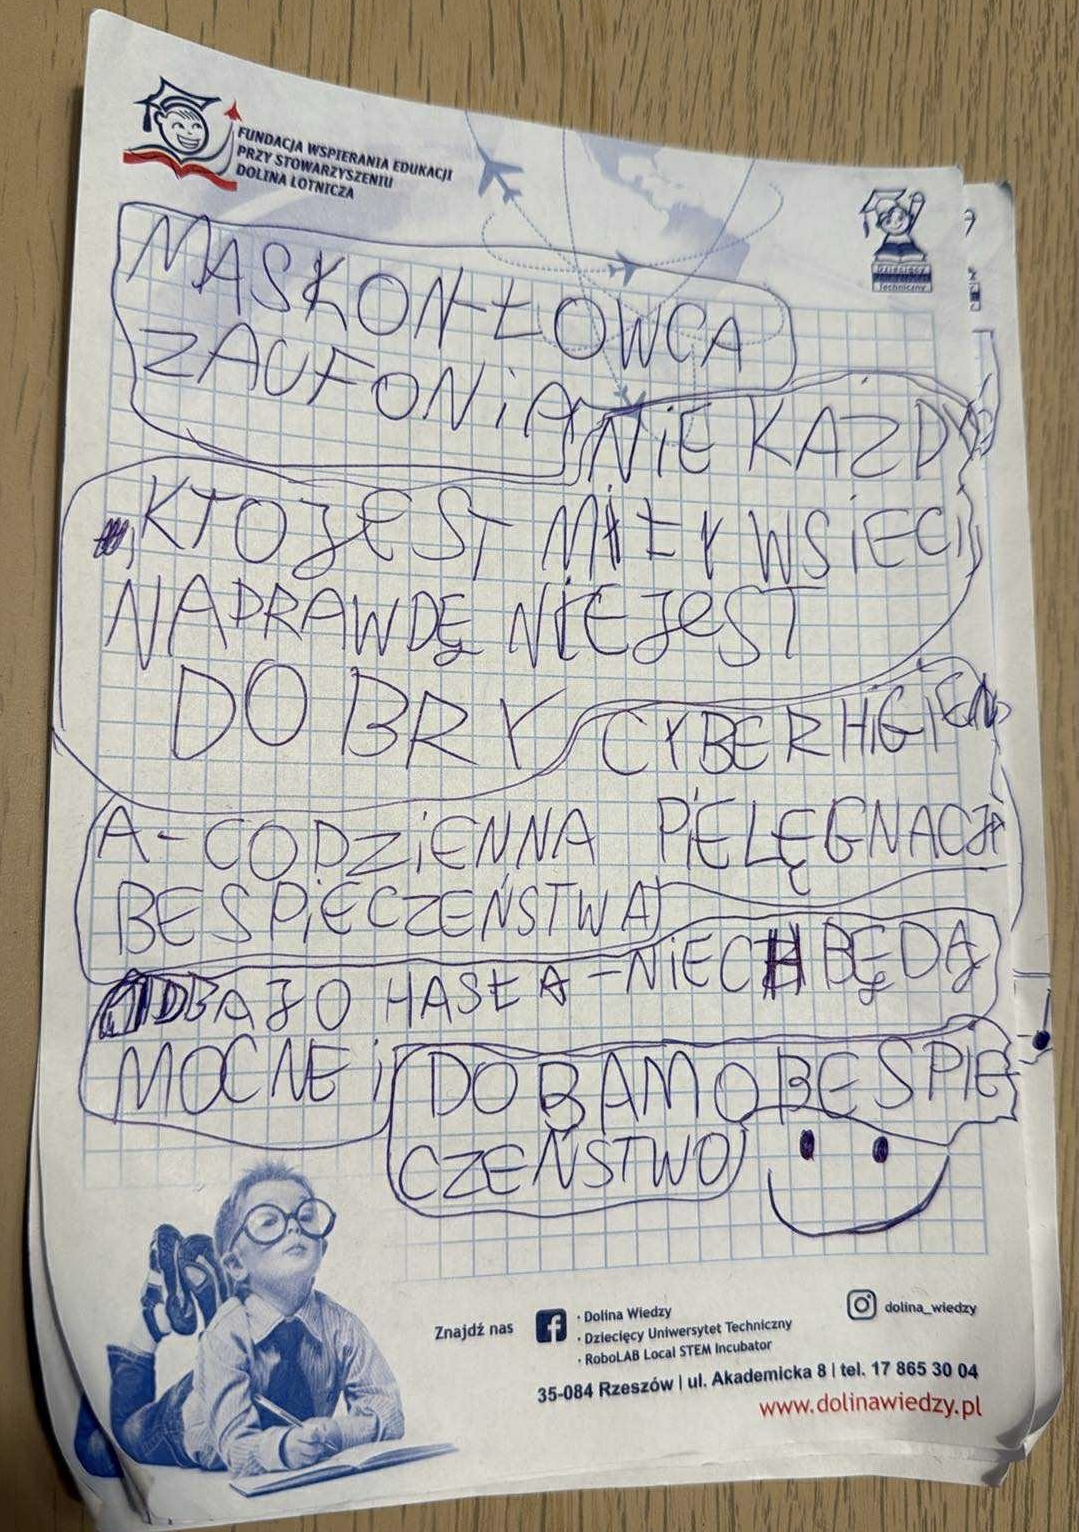 FUNDACJA WSPIERANIA EDUKACJI
PRZY STOWARZYSZENIU
DOLINA LOTNICZA
MASKON-ŁOWCA
ZAUFONiA
NiE KAZDY
KTO JEST MiŁY WSiECi
NAPRAWDĘ NiE JeST
DO BRY
CYBERHiGiEN
A-CODZiENNA PiELĘGNACJA
BESPiECZEŃSTWA
DBAJ O HASŁA-NiECH BĘDĄ
MOCNE i
DOBAMO BESPIE
CZEŃSTWO
Znajdź nas
· Dolina Wiedzy
· Dziecięcy Uniwersytet Techniczny
· RoboLAB Local STEM Incubator
dolina_wiedzy
35-084 Rzeszów | ul. Akademicka 8 | tel. 17 865 30 04
www.dolinawiedzy.pl